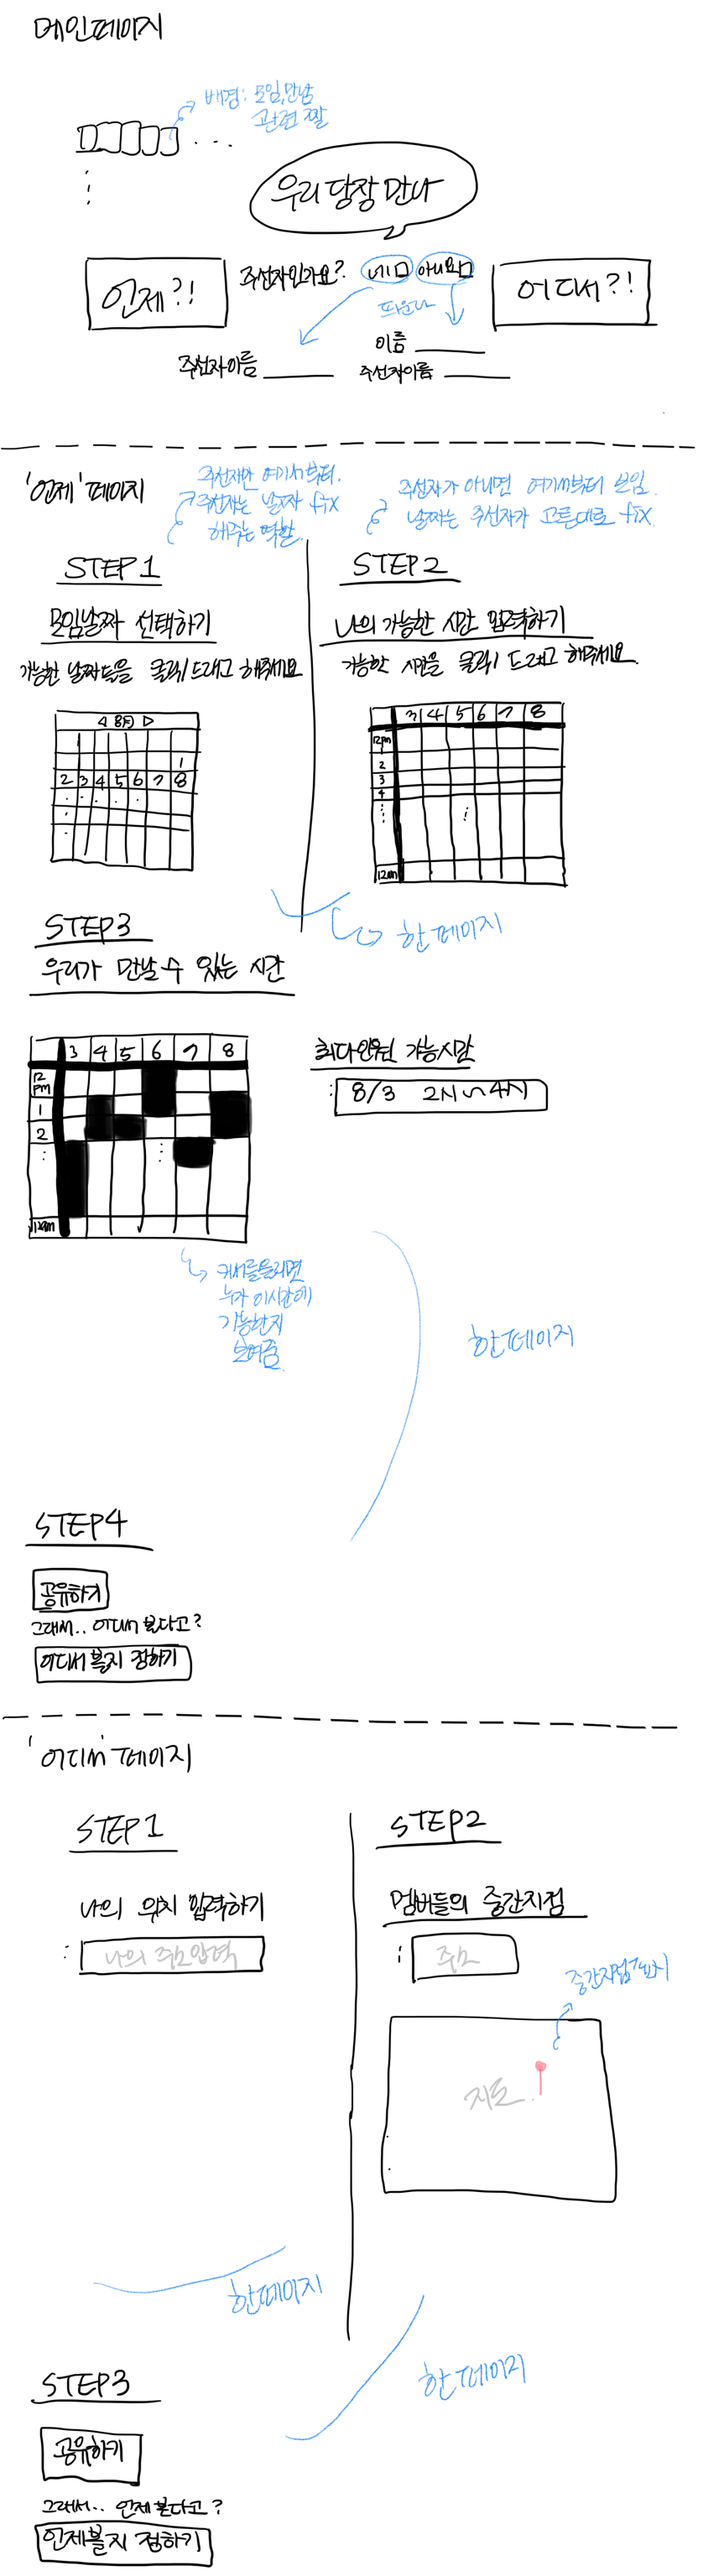 메인페이지
배경: 모임,만남
관련 짤
우리 당장 만나
언제?!
주선자인가요? 네 아니요
어디서?!
띄운다
이름
주선자이름
주선자이름
'언제' 페이지
주선자만 여기서부터.
주선자는 날짜 fix
해주는 역할.
주선자가 아니면 여기서부터 보임.
날짜는 주선자가 고른대로 fix.
STEP1
모임날짜 선택하기
가능한 날짜들을 클릭/드래그 해주세요
◁ 8月 ▷
1
2 3 4 5 6 7 8
STEP2
나의 가능한 시간 입력하기
가능한 시간을 클릭/드래그 해주세요.
3 4 5 6 7 8
12pm
1
2
3
4
12am
한페이지
STEP3
우리가 만날 수 있는 시간
3 4 5 6 7 8
12
pm
1
2
12am
최다인원 가능시간
: 8/3 2시~4시
커서를올리면
누가 이시간에
가능한지
보여줌.
한페이지
STEP4
공유하기
그래서.. 어디서 본다고?
어디서 볼지 정하기
'어디서' 페이지
STEP1
나의 위치 입력하기
: 나의 주소입력
STEP2
멤버들의 중간지점
: 주소
중간지점표시
지도
한페이지
한페이지
STEP3
공유하기
그래서.. 언제 본다고?
언제볼지 정하기